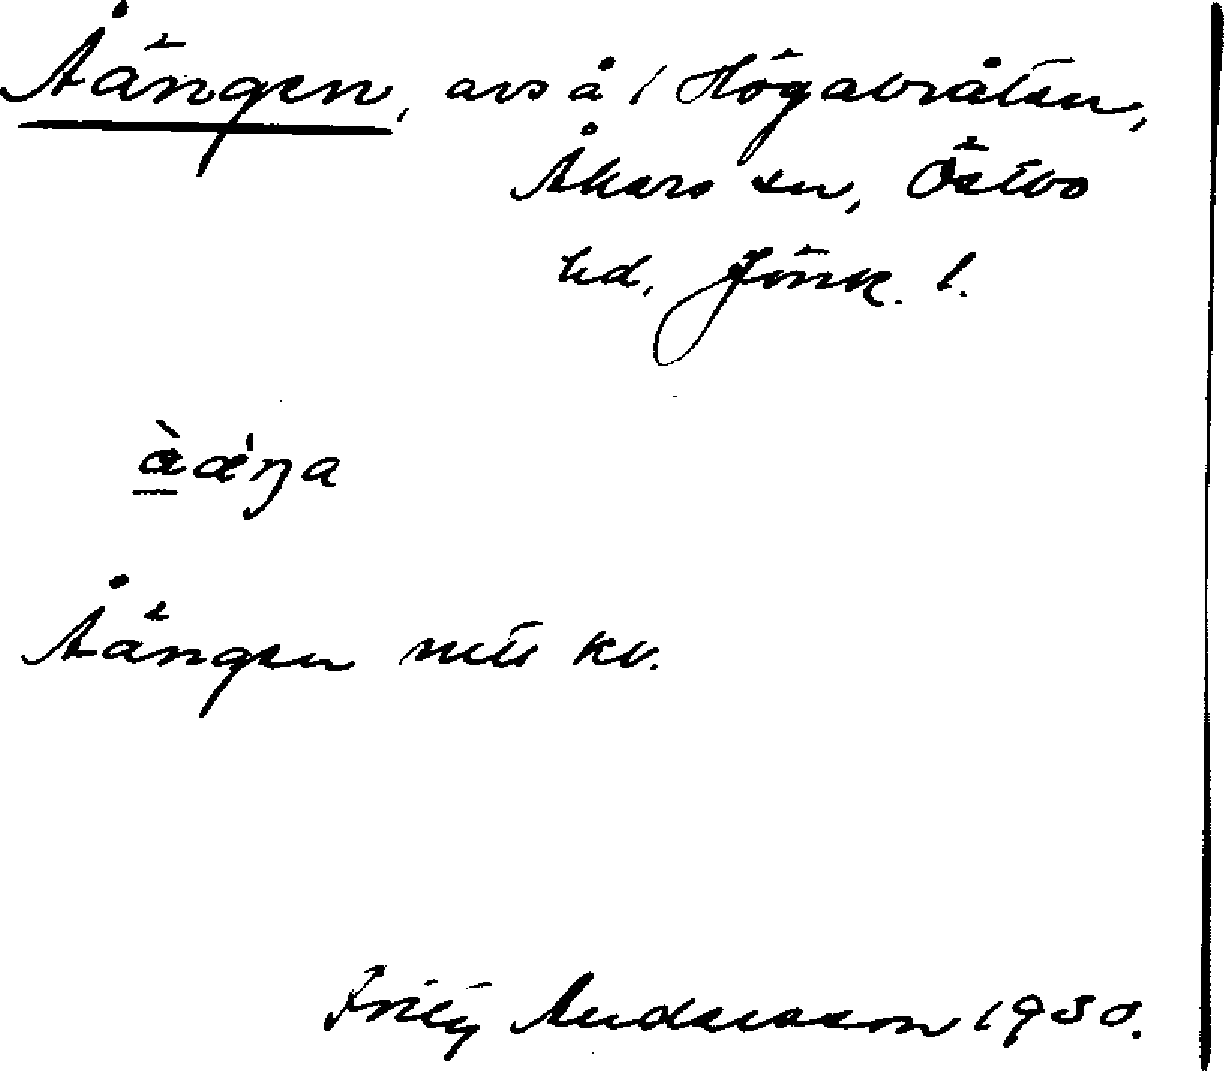 Åängen, avs å / Högabråten,
Åkers sn, Östbo
hd, Jönk. l.
å̀æ'ŋa
Åängen mtr kv.
Fritz Andersson 1930.